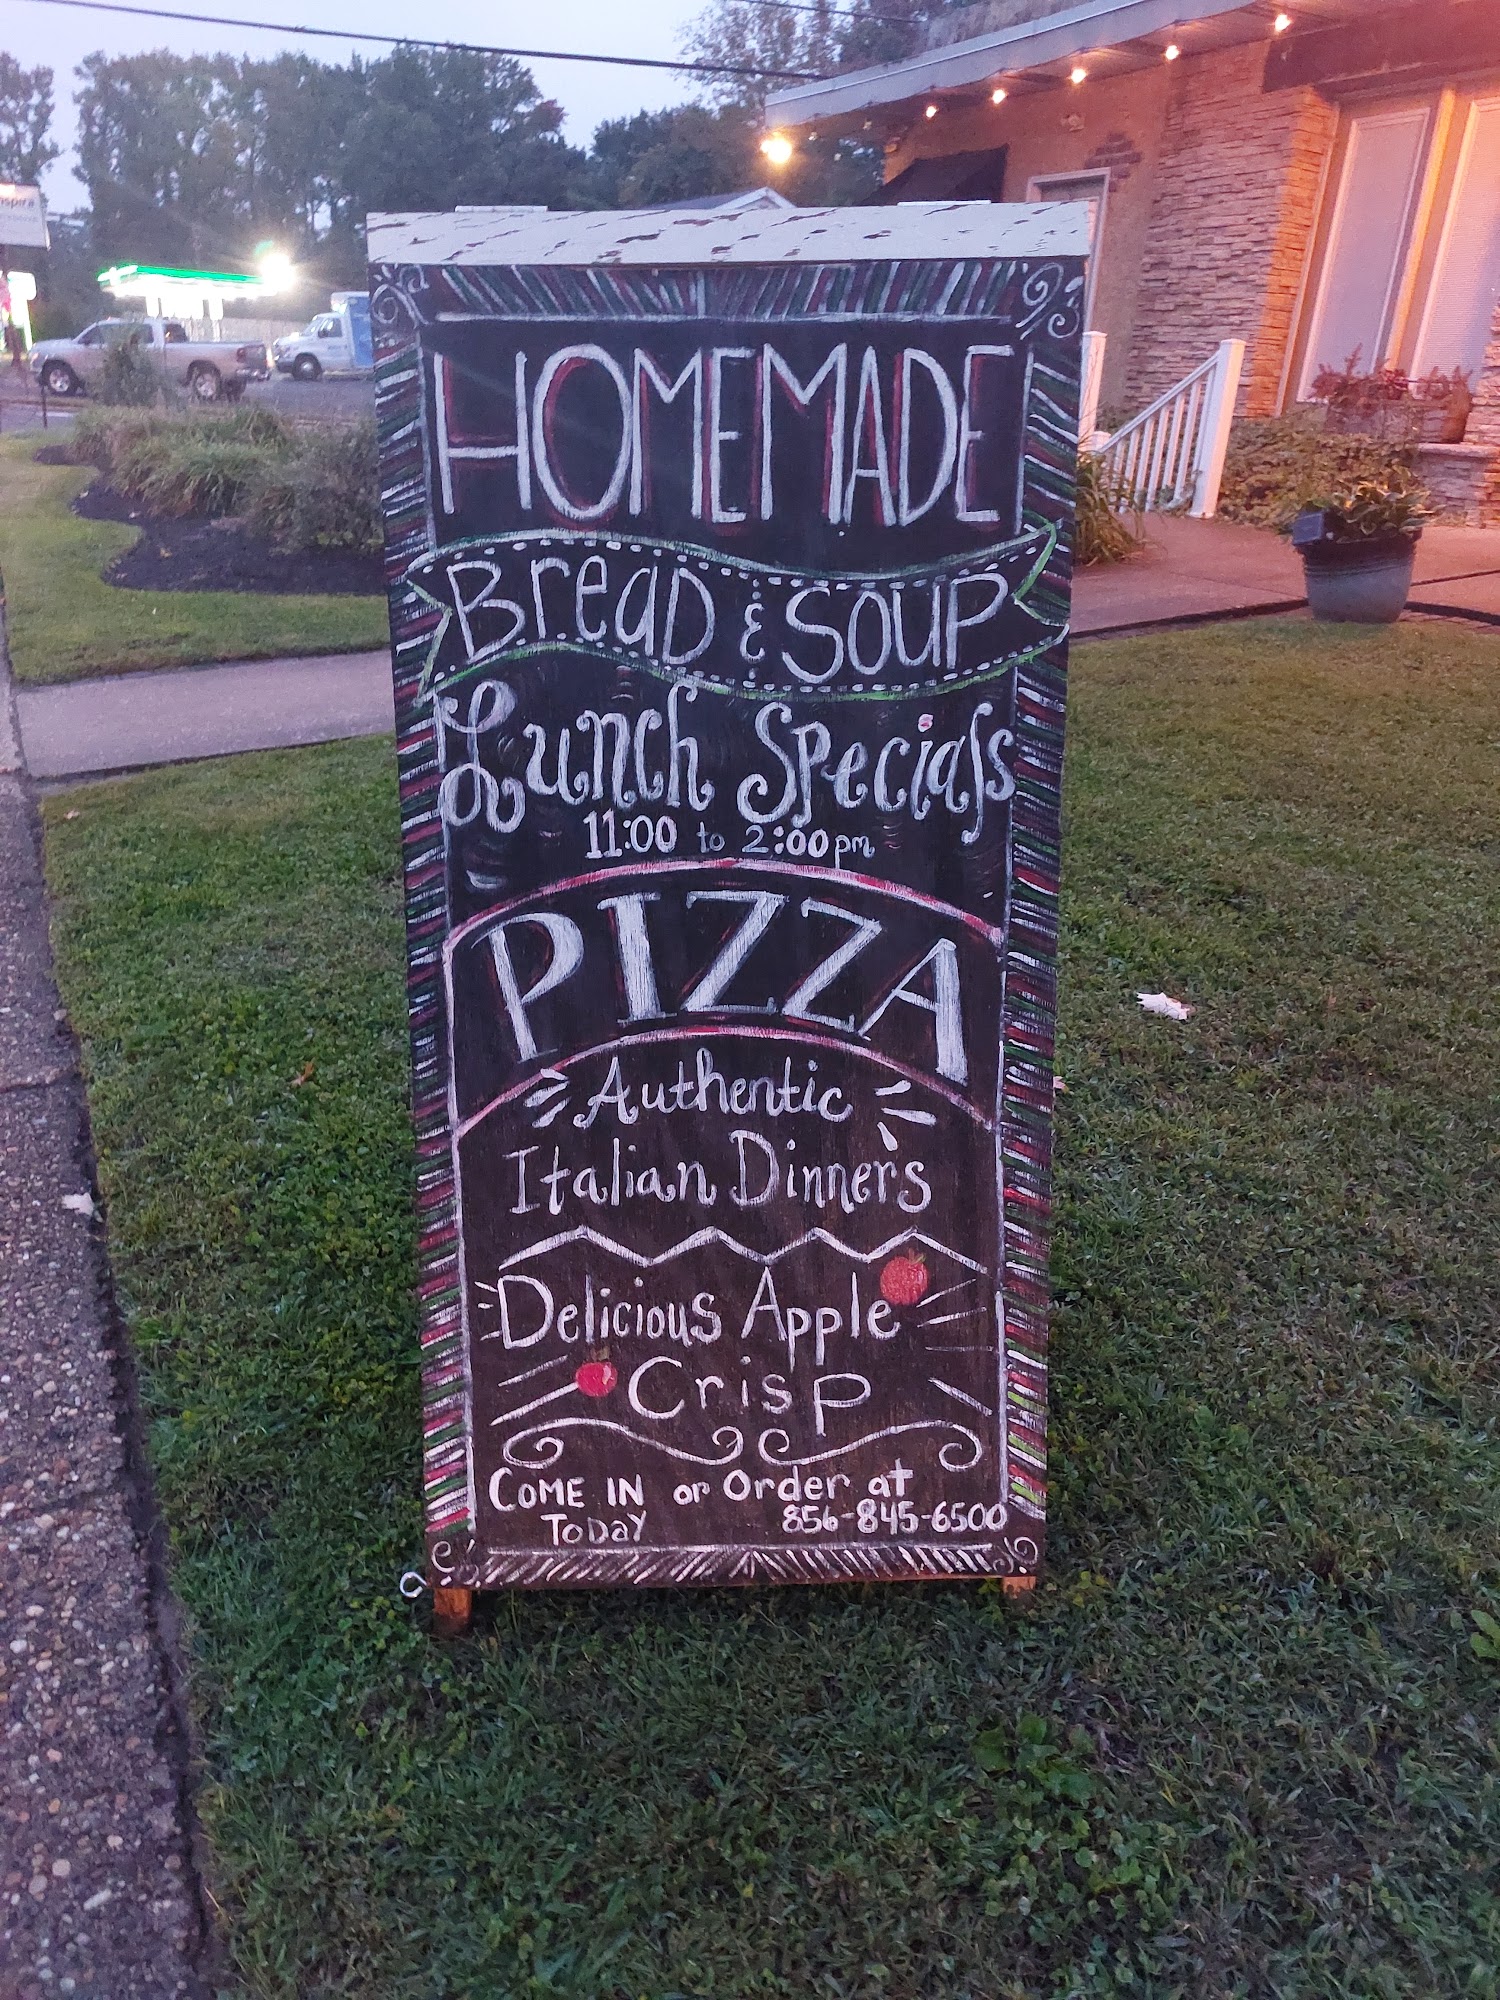 HOMEMADE
BreaD & SOUP
Lunch Specials
11:00 to 2:00 pm
PIZZA
Authentic
Italian Dinners
Delicious Apple
Crisp
COME IN or Order at
ToDaY 856-845-6500